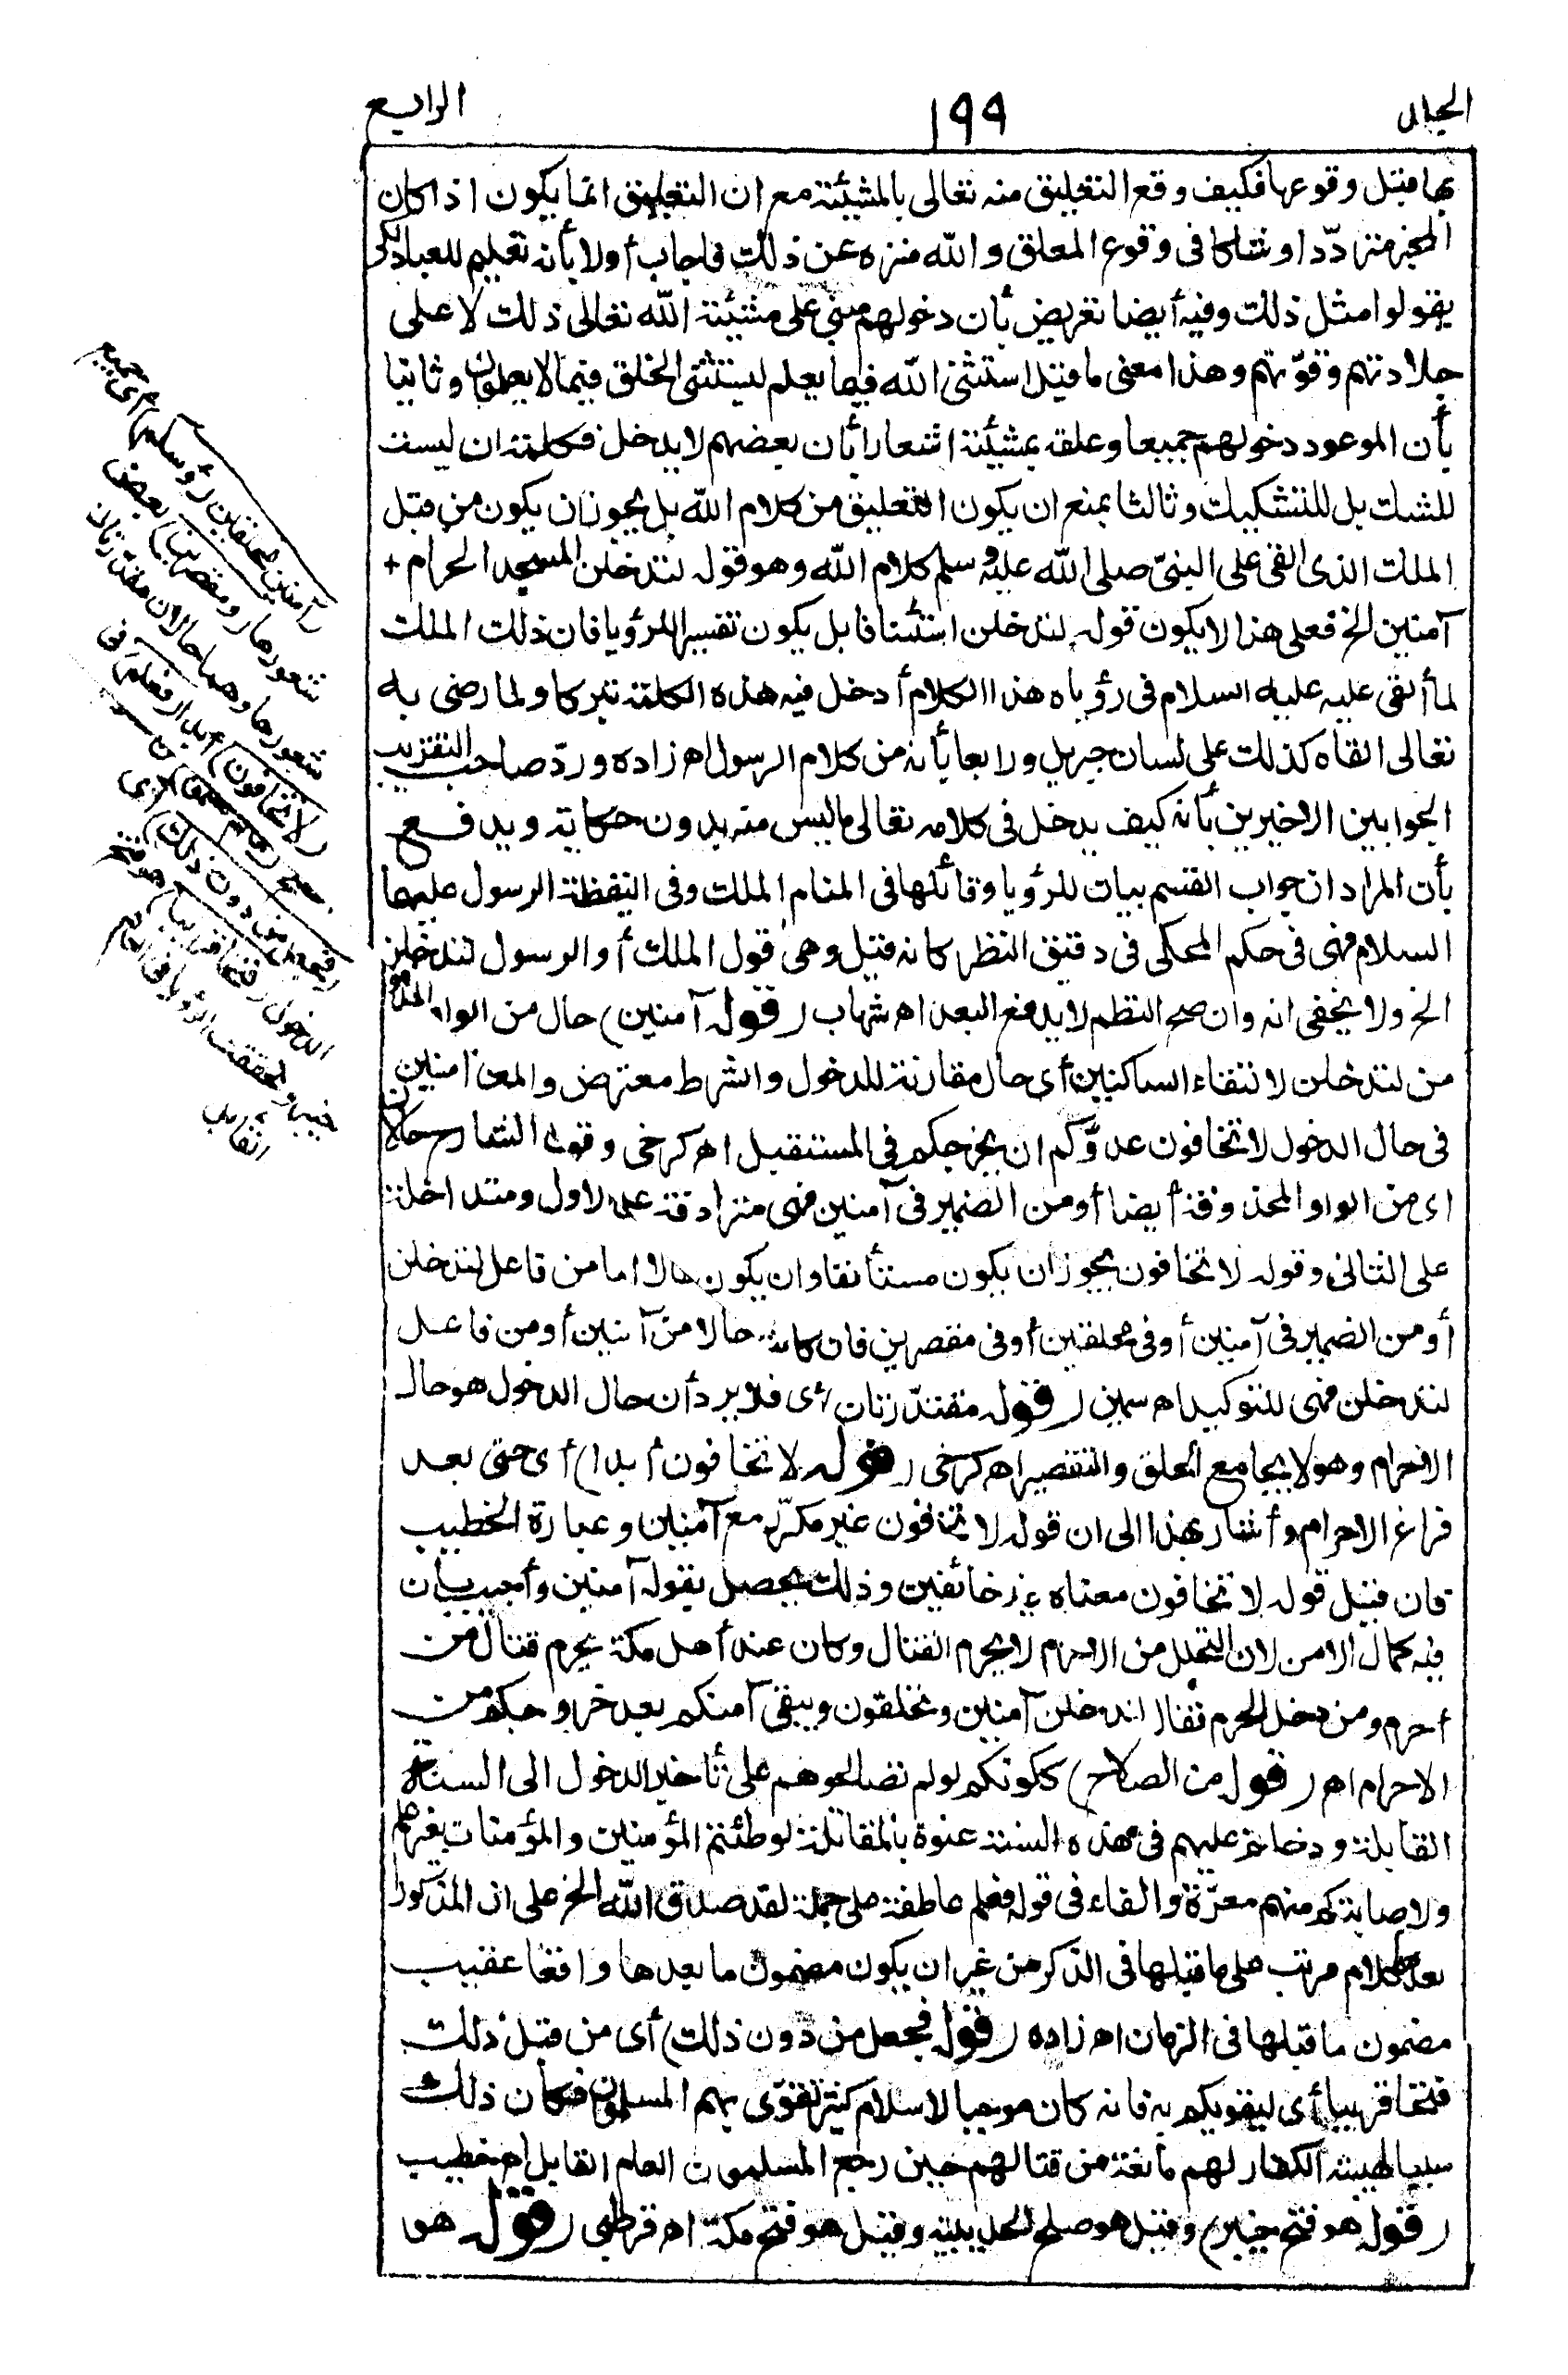 الجمل
١٩٩
الرابع
بها قبل وقوعها فكيف وقع التعليق منه تعالى بالمشيئة مع ان التعليق انما يكون اذا كان
المخبر مترددا او شاكا فى وقوع المعلق والله منزه عن ذلك فاجاب أولا بأنه تعليم للعباد لكى
يقولوا مثل ذلك وفيه أيضا تعريض بأن دخولهم مبنى على مشيئة الله تعالى ذلك لا على
جلادتهم وقوّتهم وهذا معنى ما قيل استثنى الله فيما يعلم ليستثنى الخلق فيما لا يعلمون وثانيا
بأن الموعود دخولهم جميعا وعلقه بمشيئته اشعارا بأن بعضهم لا يدخل فكلمة ان ليست
للشك بل للتشكيك وثالثا بمنع ان يكون التعليق من كلام الله بل يجوز ان يكون من قبل
الملك الذى القى على النبىّ صلى الله عليه وسلم كلام الله وهو قوله لتدخلن المسجد الحرام +
آمنين الخ فعلى هذا لا يكون قوله لتدخلن استئنافا بل يكون تفسيرا للرؤيا فان ذلك الملك
لما ألقى عليه عليه السلام فى رؤياه هذا الكلام أدخل فيه هذه الكلمة تبركا ولما رضى به
تعالى القاه كذلك على لسان جبريل ورابعا بأنه من كلام الرسول اه زاده وردّ صاحب التقريب
الجوابين الاخيرين بأنه كيف يدخل فى كلامه تعالى ما ليس منه بدون حكاية ويدفع
بأن المراد ان جواب القسم بيان للرؤيا وقائلها فى المنام الملك وفى اليقظة الرسول عليهما
السلام فهى فى حكم المحكى فى دقيق النظر كانه قيل وهى قول الملك أو الرسول لتدخلن
الخ ولا يخفى انه وان صحح النظم لا يدفع البعد اه شهاب (قوله آمنين) حال من الواو المحذوفة
من لتدخلن لالتقاء الساكنين أى حال مقارنة للدخول والشرط معترض والمعنى آمنين
فى حال الدخول لا تخافون عدوّكم ان يخرجكم فى المستقبل اه كرخى وقول الشارح حالان
اى من الواو المحذوفة أيضا أو من الضمير فى آمنين فهى مترادفة على الاول ومتداخلة
على الثانى وقوله لا تخافون يجوز ان يكون مستأنفا وان يكون حالا اما من فاعل لتدخلن
أو من الضمير فى آمنين أو فى محلقين أو فى مقصرين فان كانت حالا من آمنين أو من فاعل
لتدخلن فهى للتوكيد اه سمين (قوله مقدّرتان) أى فلا يرد أن حال الدخول هو حال
الاحرام وهو لا يجامع الحلق والتقصير اه كرخى (قوله لا تخافون أبدا) أى حتى بعد
فراغ الاحرام وأشار بهذا الى ان قوله لا تخافون غير مكرّر مع آمنين وعبارة الخطيب
فان قيل قوله لا تخافون معناه غير خائفين وذلك يحصل بقوله آمنين وأجيب بان
فيه كمال الامن لان التحلل من الاحرام لا يحرم القتال وكان عند أهل مكة يحرم قتال من
أحرم ومن دخل الحرم فقال لتدخلن آمنين وتحلقون ويبقى آمنكم بعد خروجكم من
الاحرام اه (قوله من الصلاح) ككونكم لو لم تصالحوهم على تأخير الدخول الى السنة
القابلة ودخلتم عليهم فى هذه السنة عنوة بالمقاتلة لوطئتم المؤمنين والمؤمنات بغير علم
ولاصابتكم منهم معرّة والفاء فى قوله فعلم عاطفة على جملة لقد صدق الله الخ على ان المذكور
بعدها كلام مرتب على ما قبلها فى الذكر من غير ان يكون مضمون ما بعدها واقعا عقيب
مضمون ما قبلها فى الزمان اه زاده (قوله فجعل من دون ذلك) أى من قبل ذلك
فتحا قريبا أى ليقويكم به فانه كان موجبا لاسلام كثير تقوّى بهم المسلمون فكان ذلك
سببا لهيبة الكفار لهم مانعة من قتالهم حين رجع المسلمون العام القابل اه خطيب
(قوله هو فتح خيبر) وقيل هو صلح الحديبية وقيل هو فتح مكة اه قرطبى (قوله هو
(آمنين محلقين رؤسكم) أى جميع
شعورها (ومقصرين) بعض
شعورها وهما حالان مقدّرتان
(لا تخافون) أبدا (فعلم) فى
الصلح (ما لم تعلموا) من
(فجعل من دون ذلك) أى
الدخول (فتحا قريبا) هو فتح
خيبر وتحققت الرؤيا فى العام
القابل